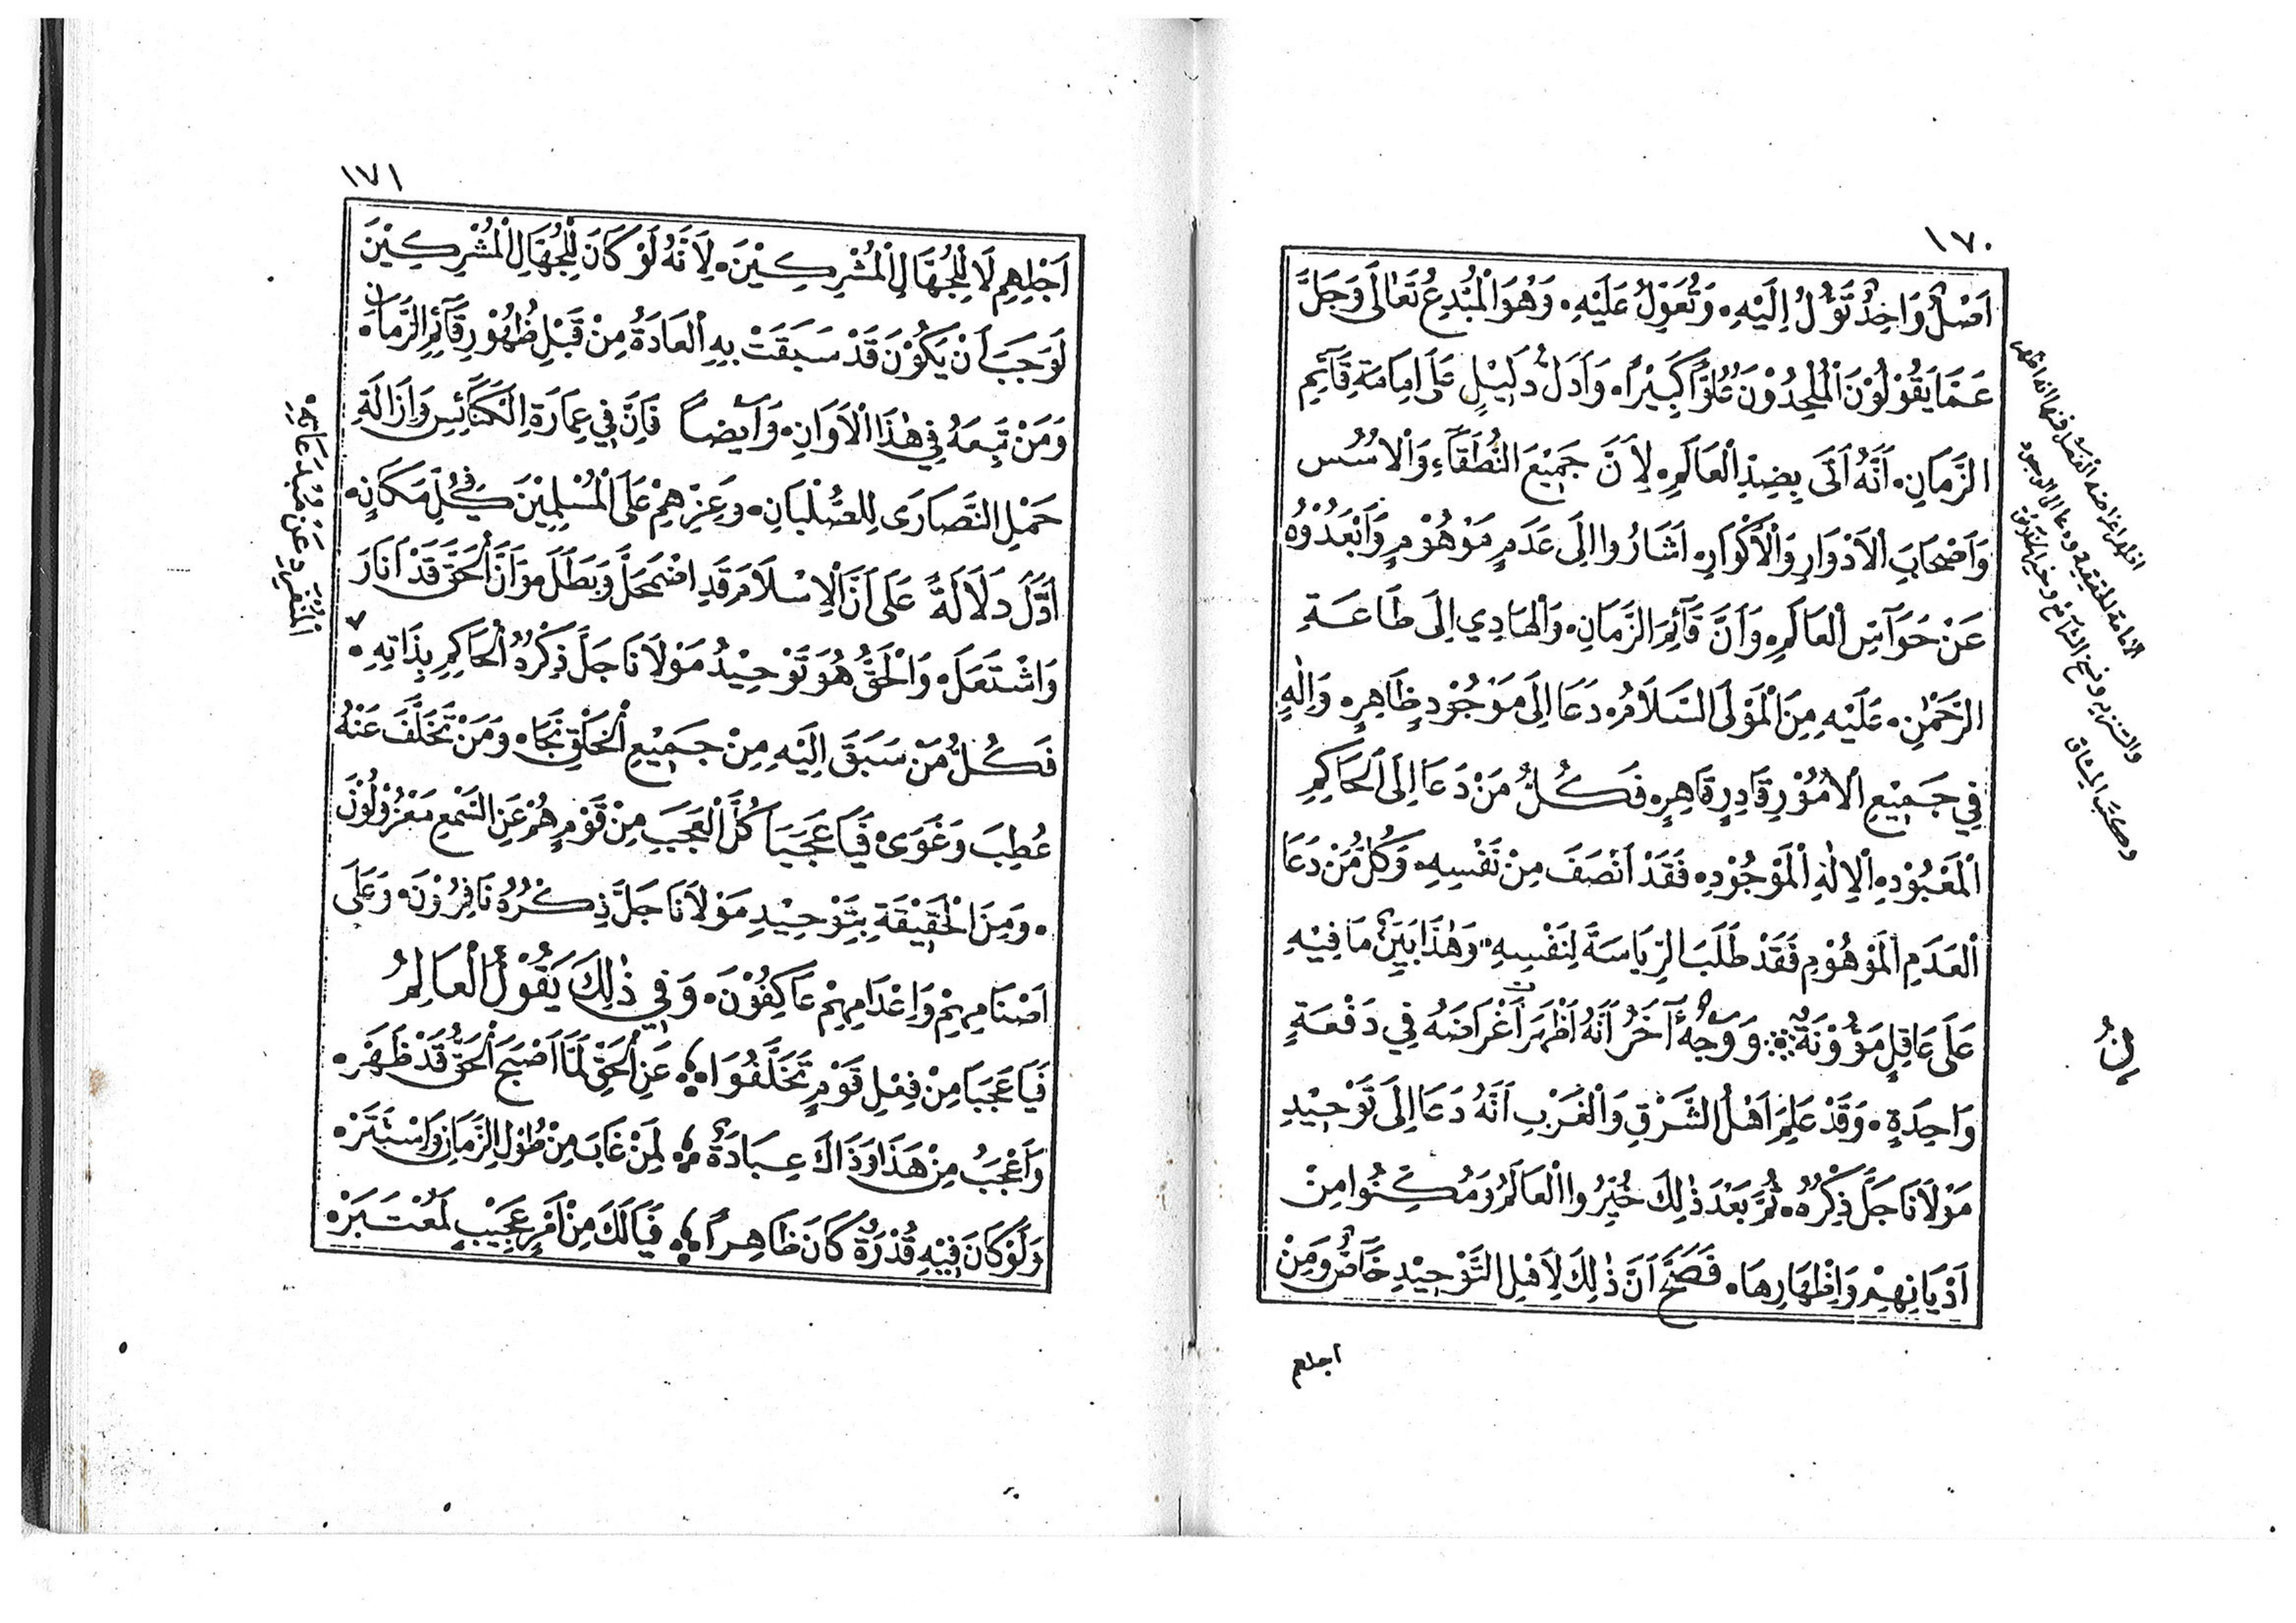 ١٧٠
اَصْلٌ وَاحِدٌ تَؤُلُ اِلَيْهِ. وَتُعَوِّلُ عَلَيْهِ. وَهُوَ الْمُبْدِعُ تَعَالَى وَجَلَّ
عَمَّا يَقُوْلُوْنَ الْمُلْحِدُوْنَ عُلُوًّا كَبِيْرًا. وَاَدَلُّ دَلِيْلٍ عَلَى اِمَامَةِ قَآئِمِ
الزَّمَانِ. اَنَّهُ اَتَى بِضِدِّ الْعَالَمِ. لِاَنَّ جَمِيْعَ النُّطَقَآءِ وَالْاُسُسِ
وَاَصْحَابِ الْاَدْوَارِ وَالْاَكْوَارِ. اَشَارُوا اِلَى عَدَمٍ مَوْهُوْمٍ وَاَبْعَدُوْهُ
عَنْ حَوَآسِّ الْعَالَمِ. وَاَنَّ قَآئِمَ الزَّمَانِ. وَالْهَادِي اِلَى طَاعَةِ
الرَّحْمٰنِ. عَلَيْهِ مِنَ الْمَوْلَى السَّلَامُ. دَعَا اِلَى مَوْجُوْدٍ ظَاهِرٍ. وَاِلٰهٍ
فِي جَمِيْعِ الْاُمُوْرِ قَادِرٍ قَاهِرٍ. فَكُلُّ مَنْ دَعَا اِلَى الْحَاكِمِ
الْمَعْبُوْدِ. الْاِلٰهِ الْمَوْجُوْدِ. فَقَدْ اَنْصَفَ مِنْ نَفْسِهِ. وَكُلُّ مَنْ دَعَا
الْعَدَمِ الْمَوْهُوْمِ فَقَدْ طَلَبَ الرِّيَاسَةَ لِنَفْسِهِ. وَهٰذَا بَيِّنٌ مَا فِيْهِ
عَلَى عَاقِلٍ مَؤُوْنَةٌ وَوَجْهٌ آخَرُ اَنَّهُ اَظْهَرَ اَغْرَاضَهُ فِي دَفْعَةٍ
وَاحِدَةٍ. وَقَدْ عَلِمَ اَهْلُ الشَّرْقِ وَالْغَرْبِ اَنَّهُ دَعَا اِلَى تَوْحِيْدِ
مَوْلَانَا جَلَّ ذِكْرُهُ. ثُمَّ بَعْدَ ذٰلِكَ خُيِّرُوا الْعَالَمُ وَمُكِّنُوا مِنْ
اَدْيَانِهِمْ وَاِظْهَارِهَا. فَصَحَّ اَنَّ ذٰلِكَ لِاَهْلِ التَّوْحِيْدِ خَاصٌّ وَمِنْ
اجلهم
١٧١
اَجْلِهِمْ لَا لِلْجُهَّالِ الْمُشْرِكِيْنَ. لِاَنَّهُ لَوْ كَانَ لِلْجُهَّالِ الْمُشْرِكِيْنَ
لَوَجَبَ اَنْ يَكُوْنَ قَدْ سَبَقَتْ بِهِ الْعَادَةُ مِنْ قَبْلِ ظُهُوْرِ قَآئِمِ الزَّمَانِ.
وَمَنْ تَبِعَهُ فِي هٰذَا الْاَوَانِ. وَاَيْضًا فَاِنَّ فِي عِمَارَةِ الْكَنَآئِسِ وَاِزَالَةِ
حَمْلِ النَّصَارَى لِلصُّلْبَانِ. وَعِزِّهِمْ عَلَى الْمُسْلِمِيْنَ فِي كُلِّ مَكَانٍ.
اَدَلَّ دَلَالَةً عَلَى اَنَّ الْاِسْلَامَ قَدِ اضْمَحَلَّ وَبَطَلَ. وَاَنَّ الْحَقَّ قَدْ اَنَارَ
وَاشْتَعَلَ. وَالْحَقُّ هُوَ تَوْحِيْدُ مَوْلَانَا جَلَّ ذِكْرُهُ الْحَاكِمِ بِذَاتِهِ.
فَكُلُّ مَنْ سَبَقَ اِلَيْهِ مِنْ جَمِيْعِ الْخَلْقِ نَجَا. وَمَنْ تَخَلَّفَ عَنْهُ
عُطِبَ وَغَوَى. فَيَا عَجَبَا كُلَّ الْعَجَبِ مِنْ قَوْمٍ هُمْ عَنِ السَّمْعِ مَعْزُوْلُوْنَ
. وَمِنَ الْحَقِيْقَةِ بِتَوْحِيْدِ مَوْلَانَا جَلَّ ذِكْرُهُ نَافِرُوْنَ. وَعَلَى
اَصْنَامِهِمْ وَاِعْدَامِهِمْ عَاكِفُوْنَ. وَفِي ذٰلِكَ يَقُوْلُ الْعَالِمُ
فَيَا عَجَبَا مِنْ فِعْلِ قَوْمٍ تَخَلَّفُوا عَنِ الْحَقِّ لَمَّا اَصْبَحَ الْحَقُّ قَدْ ظَهَرْ.
وَاَعْجَبُ مِنْ هَذَا وَذَاكَ عِبَادَةٌ لِمَنْ غَابَ مِنْ طُوْلِ الزَّمَانِ وَاسْتَتَرْ.
وَلَوْ كَانَ فِيْهِ قُدْرَةٌ كَانَ ظَاهِرًا فَيَا لَكَ مِنْ اَمْرٍ عَجِيْبٍ لَمُعْتَبَرْ.